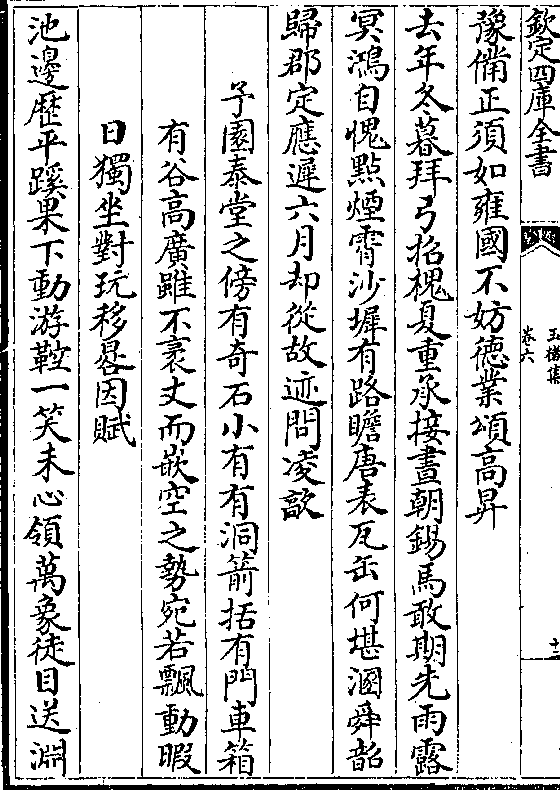 欽定四庫全書
玉楮集
卷六
十二
豫備正須如雍國不妨徳業頌高昇
去年冬暮拜弓招槐夏重承接晝朝錫馬敢期先雨露
冥鴻自愧點煙霄沙堤有路瞻唐表瓦缶何堪溷舜韶
歸郡定應遲六月却從故迹問凌歊
予園泰堂之傍有奇石小有有洞箭括有門車箱
有谷高廣雖不袤丈而嵌空之勢宛若飄動暇
日獨坐對玩移晷因賦
池邊歴平蹊果下動游鞚一笑未心領萬象徒目送淵